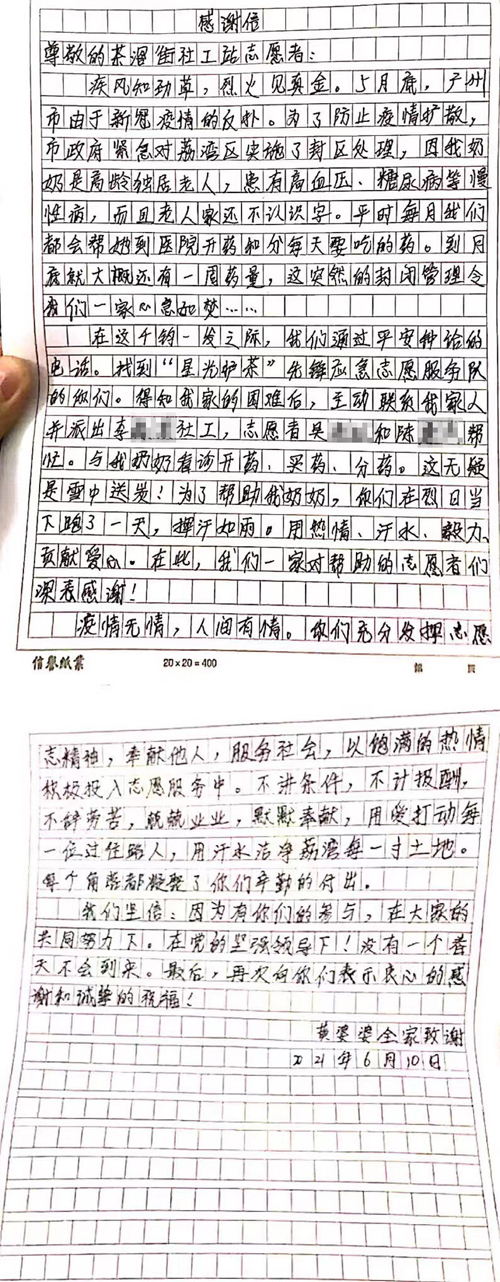 感谢信
尊敬的茶滘街社工站志愿者：
疾风知劲草，烈火见真金。5月底，广州
市由于新冠疫情的反扑。为了防止疫情扩散，
市政府紧急对荔湾区实施了封区处理，因我奶
奶是高龄独居老人，患有高血压、糖尿病等慢
性病，而且老人家还不认识字。平时每月我们
都会帮她到医院开药和分每天要吃的药。到月
底就大概还有一周药量，这突然的封闭管理令
我们一家心急如焚……
在这千钧一发之际，我们通过平安钟给的
电话。找到“星光护茶”先锋应急志愿服务队
的你们。得知我家的困难后，主动联系我家人
并派出李社工，志愿者吴和陆帮
忙。与我奶奶看诊开药、买药、分药。这无疑
是雪中送炭！为了帮助我奶奶，你们在烈日当
下跑了一天，挥汗如雨。用热情、汗水、毅力、
贡献爱心。在此，我们一家对帮助的志愿者们
深表感谢！
疫情无情，人间有情。你们充分发挥志愿
信誉纸业 20×20=400 第 页
志精神，奉献他人，服务社会，以饱满的热情
积极投入志愿服务中。不讲条件，不计报酬，
不辞劳苦，兢兢业业，默默奉献，用爱打动每
一位过往路人，用汗水洁净荔湾每一寸土地。
每个角落都凝聚了你们辛勤的付出。
我们坚信：因为有你们的参与，在大家的
共同努力下。在党的坚强领导下！没有一个春
天不会到来。最后，再次向你们表示衷心的感
谢和诚挚的祝福！
黄婆婆全家致谢
2021年6月10日